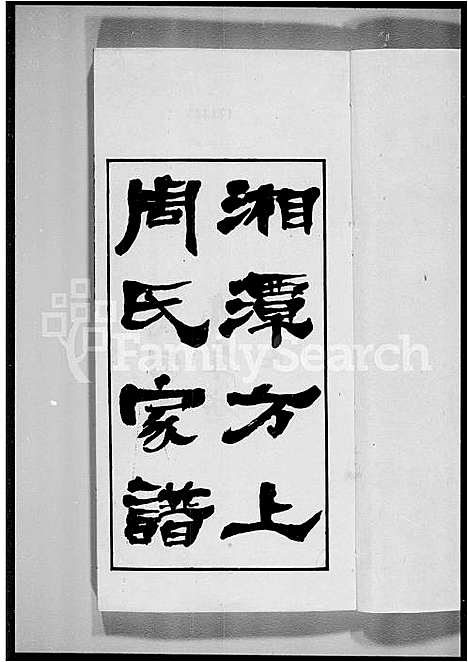 湘潭方上
周氏家譜
FamilySearch